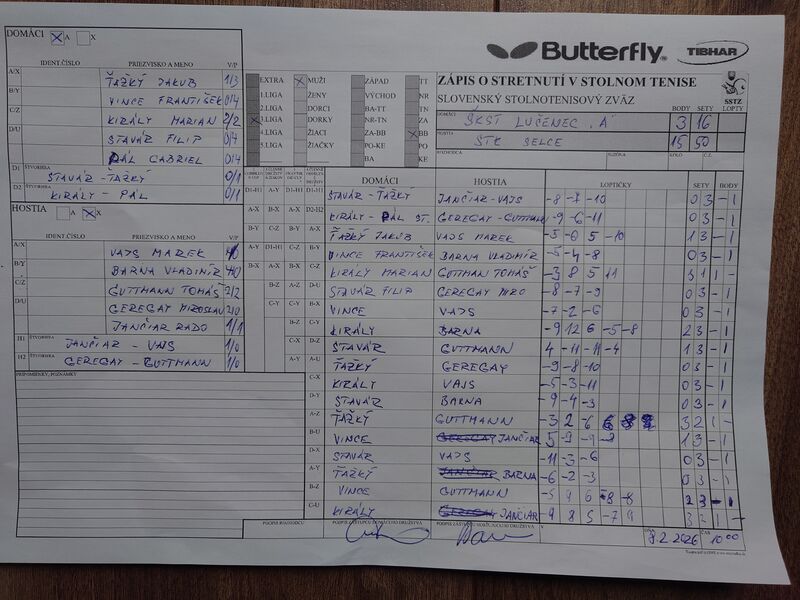 DOMÁCI X A X
Butterfly
TIBHAR
IDENT.ČÍSLO PRIEZVISKO A MENO V/P
A/X ŤAŽKÝ JAKUB 1/3
B/Y VINCE FRANTIŠEK 0/4
C/Z KIRÁLY MARIAN 2/2
D/U STAVÁR FILIP 0/4
PÁL GABRIEL 0/4
D1 ŠTVORHRA STAVÁR - ŤAŽKÝ 0/1
D2 KIRÁLY - PÁL 0/1
EXTRA X MUŽI ZÁPAD TT
1.LIGA ŽENY VÝCHOD NR
2.LIGA DORCI BA-TT TN
3.LIGA DORKY NR-TN ZA
4.LIGA ŽIACI ZA-BB BB
5.LIGA ŽIAČKY PO-KE PO
BA KE
ZÁPIS O STRETNUTÍ V STOLNOM TENISE
SLOVENSKÝ STOLNOTENISOVÝ ZVÄZ
SSTZ
BODY SETY LOPTY
DOMÁCI ŠKST LUČENEC "A" 3 16
HOSTIA STK SELCE 15 50
KOLO Č.Z.
HOSTIA A X X
IDENT.ČÍSLO PRIEZVISKO A MENO V/P
A/X VAJS MAREK
B/Y BARNA VLADIMÍR
C/Z GUTTMANN TOMÁŠ 2/2
D/U GEREGAY MIROSLAV
JANČIAR RADO 1/1
H1 ŠTVORHRA JANČIAR - VAJS 1/0
H2 ŠTVORHRA GEREGAY - GUTTMANN 1/0
PRIPOMIENKY, POZNÁMKY
DOMÁCI HOSTIA LOPTIČKY SETY BODY
D1-H1 STAVÁR - ŤAŽKÝ JANČIAR - VAJS -8 -7 -10 0 3 - 1
D2-H2 KIRÁLY - PÁL ST. GEREGAY - GUTTMANN -9 -6 -11 0 3 - 1
A-X ŤAŽKÝ JAKUB VAJS MAREK -5 -6 5 -10 1 3 - 1
B-Y VINCE FRANTIŠEK BARNA VLADIMÍR -5 -4 -8 0 3 - 1
C-Z KIRÁLY MARIAN GUTTMAN TOMÁŠ -3 8 5 11 3 1 1 -
D-U STAVÁR FILIP GEREGAY MIRO -8 -7 -9 0 3 - 1
VINCE VAJS -7 -2 -6 0 3 - 1
KIRÁLY BARNA -9 12 6 -5 -8 2 3 - 1
D-Z STAVÁR GUTTMANN 4 -11 -11 -4 1 3 - 1
A-U ŤAŽKÝ GEREGAY -9 -8 -10 0 3 - 1
C-X KIRÁLY VAJS -5 -3 -11 0 3 - 1
D-Y STAVÁR BARNA -9 -4 -3 0 3 - 1
A-Z ŤAŽKÝ GUTTMANN -3 2 -6 3 2 1 -
B-U VINCE JANČIAR 5 -9 -9 1 3 - 1
D-X STAVÁR VAJS -11 -3 -6 0 3 - 1
A-Y ŤAŽKÝ BARNA -6 -2 -3 0 3 - 1
B-Z VINCE GUTTMANN -5 9 6 -8 -8 2 3 - 1
C-U KIRÁLY JANČIAR -9 8 5 -7 9 3 2 1 -
PODPIS ROZHODCU PODPIS ZÁSTUPCU DOMÁCEHO DRUŽSTVA PODPIS ZÁSTUPCU HOSŤUJÚCEHO DRUŽSTVA V DŇA 8.2.2026 ČAS 10:00